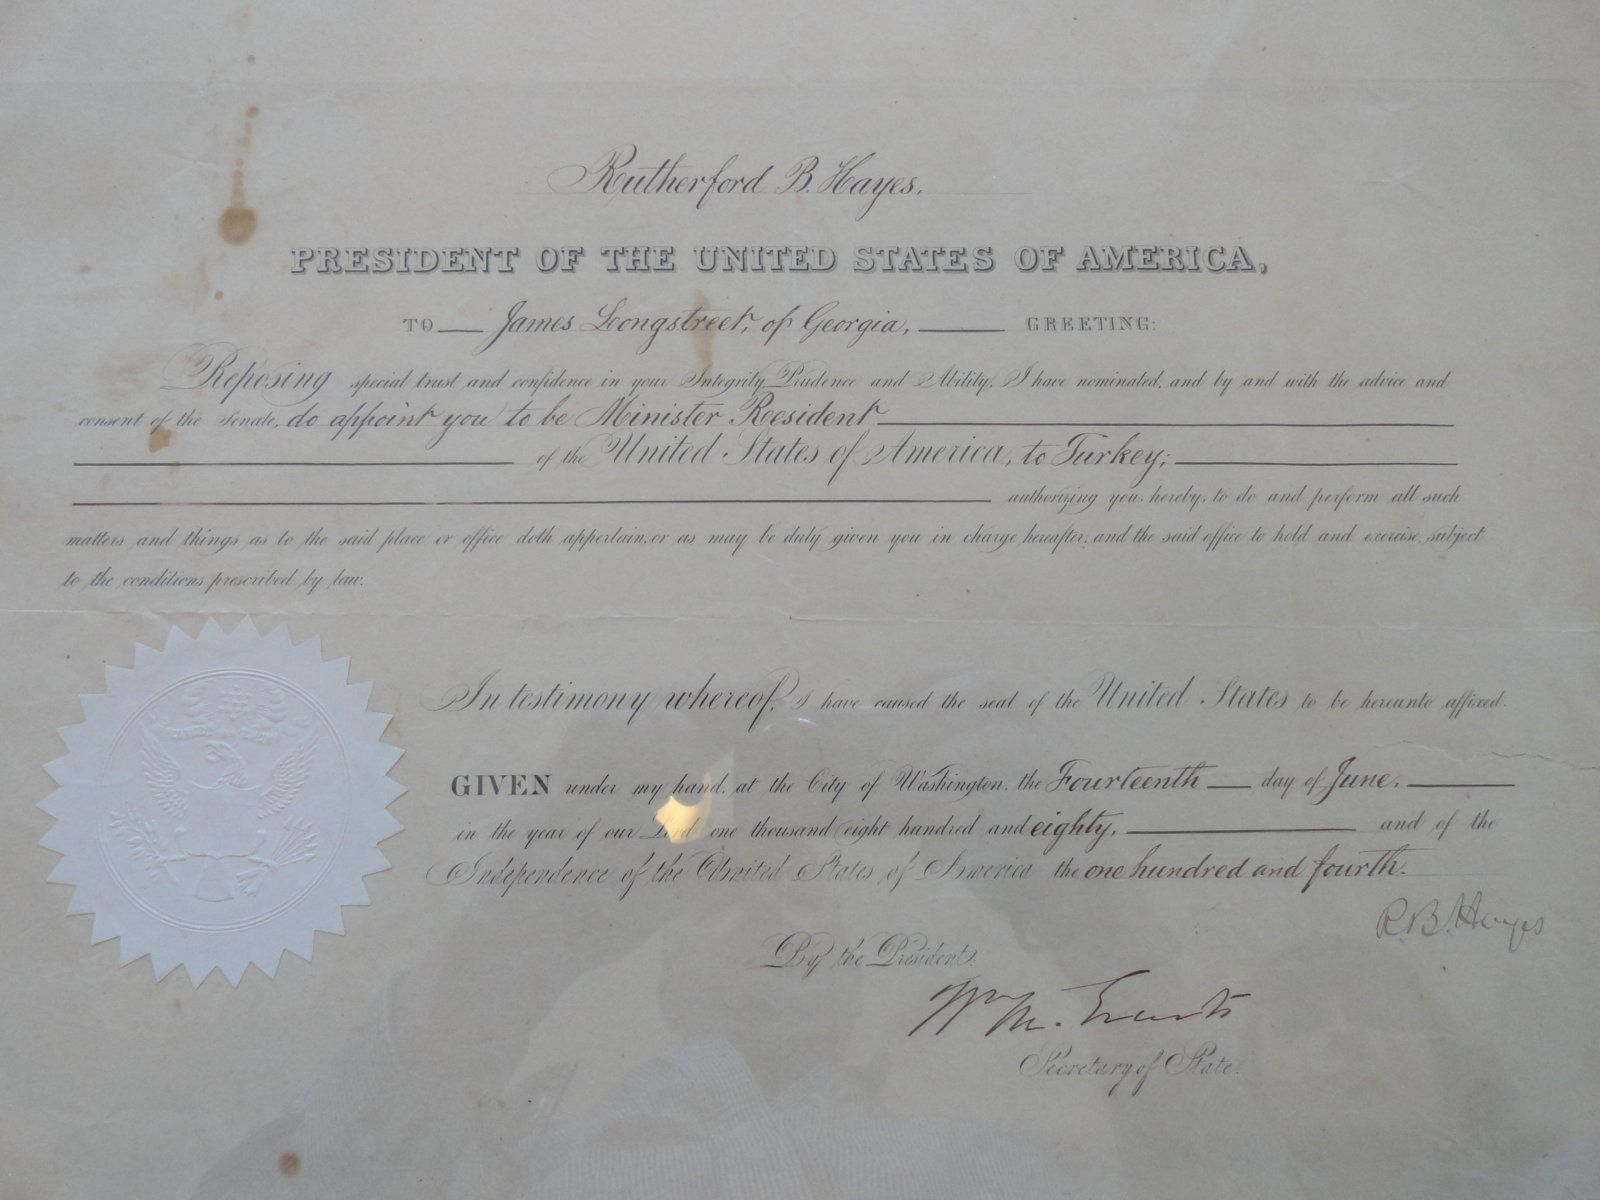 Rutherford B. Hayes,
PRESIDENT OF THE UNITED STATES OF AMERICA,
TO James Longstreet, of Georgia, GREETING:
Reposing special trust and confidence in your Integrity, Prudence and Ability, I have nominated, and by and with the advice and
consent of the Senate, do appoint you to be Minister Resident
of the United States of America, to Turkey;
authorizing you, hereby, to do and perform all such
matters and things as to the said place or office doth appertain, or as may be duly given you in charge hereafter, and the said office to hold and exercise, subject
to the conditions prescribed by law.
In testimony whereof, I have caused the seal of the United States to be hereunto affixed.
GIVEN under my hand, at the City of Washington, the Fourteenth day of June,
in the year of our Lord one thousand eight hundred and eighty, and of the
Independence of the United States of America the one hundred and fourth.
R. B. Hayes
By the President:
Wm. M. Evarts
Secretary of State.